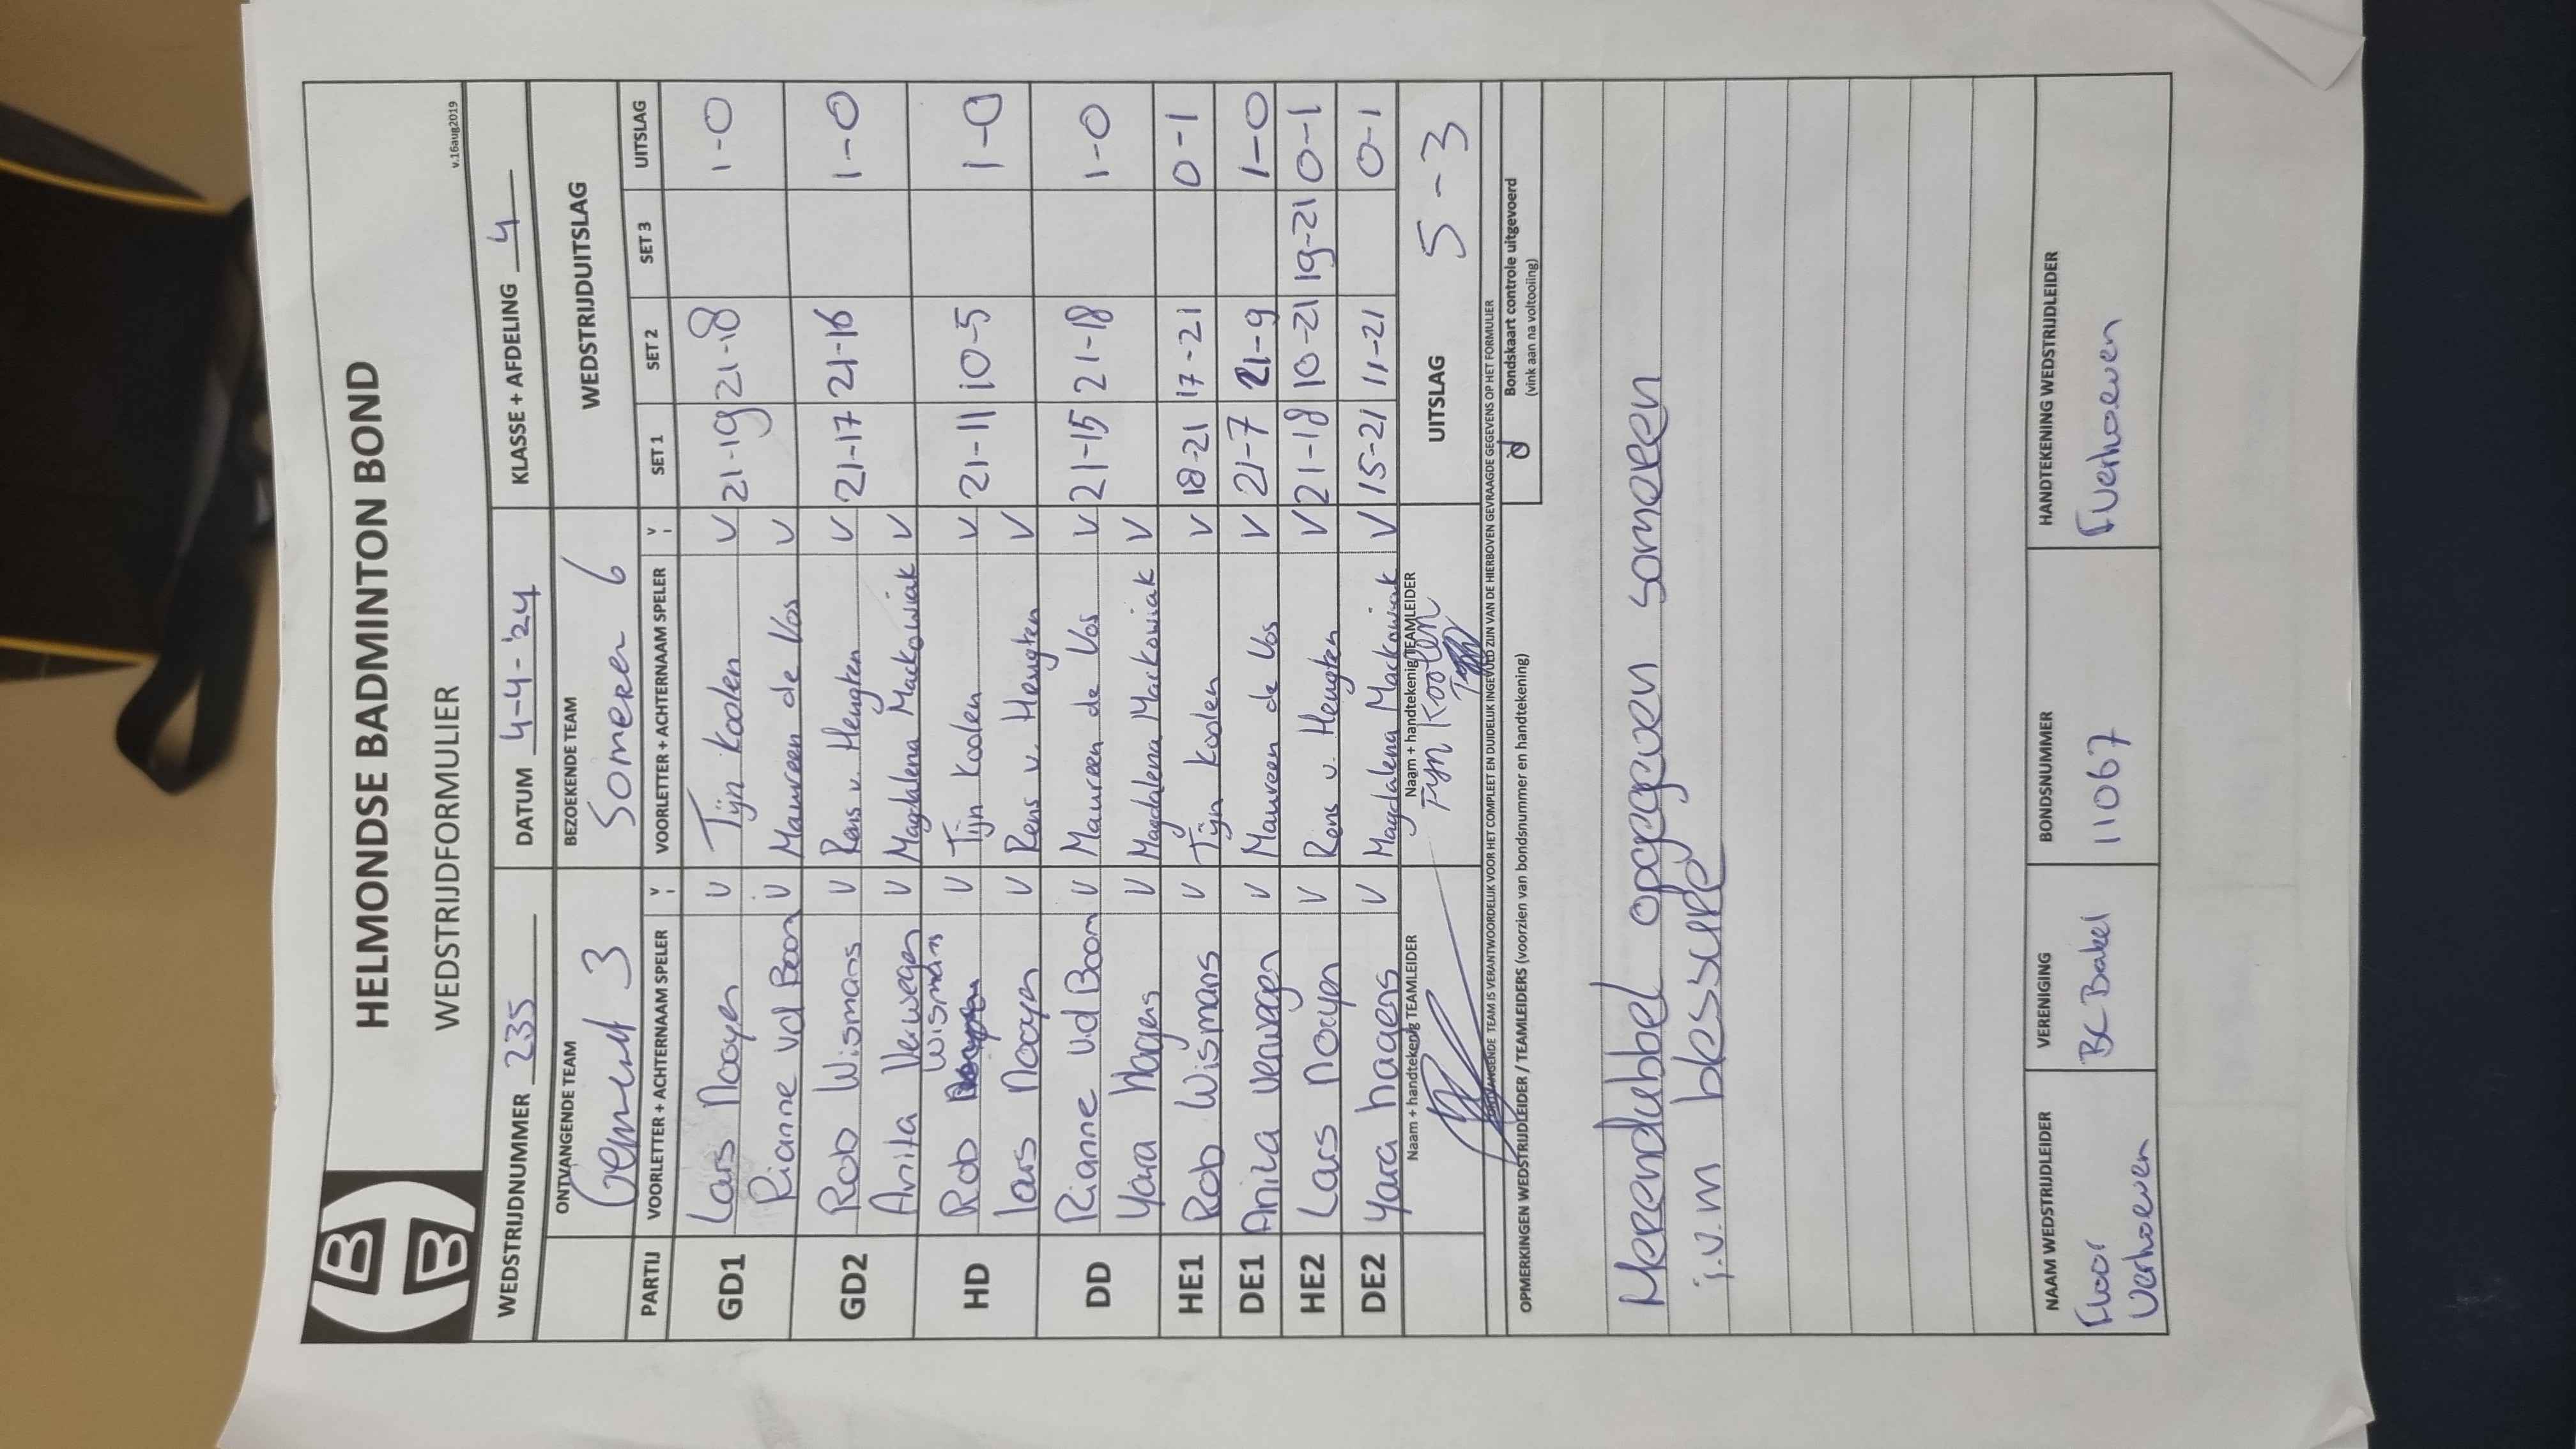 HELMONDSE BADMINTON BOND
WEDSTRIJDFORMULIER
v.16aug2019
WEDSTRIJDNUMMER 235 DATUM 4-4-'24 KLASSE + AFDELING 4
ONTVANGENDE TEAM BEZOEKENDE TEAM WEDSTRIJDUITSLAG
Gemert 3 Someren 6
PARTIJ VOORLETTER + ACHTERNAAM SPELER V VOORLETTER + ACHTERNAAM SPELER V SET 1 SET 2 SET 3 UITSLAG
GD1 Lars Nooyen V Tijn Koolen V 21-19 21-18 1-0
Rianne vd Boom V Maureen de Vos V
GD2 Rob Wismans V Rens v. Heugten V 21-17 21-16 1-0
Anita Verwegen V Magdalena Mackowiak V
HD Rob Wismans V Tijn Koolen V 21-11 10-5 1-0
lars Nooyen V Rens v. Heugten V
DD Rianne vd Boom V Maureen de Vos V 21-15 21-18 1-0
Yara Hagens V Magdalena Mackowiak V
HE1 Rob Wismans V Tijn Koolen V 18-21 17-21 0-1
DE1 Anita Verwegen V Maureen de Vos V 21-7 21-9 1-0
HE2 Lars Nooyen V Rens v. Heugten V 21-18 10-21 19-21 0-1
DE2 Yara hagens V Magdalena Mackowiak V 15-21 11-21 0-1
Naam + handtekenig TEAMLEIDER Naam + handtekenig TEAMLEIDER UITSLAG 5-3
Tijn Koolen
ONTVANGENDE TEAM IS VERANTWOORDELIJK VOOR HET COMPLEET EN DUIDELIJK INGEVULD ZIJN VAN DE HIERBOVEN GEVRAAGDE GEGEVENS OP HET FORMULIER
OPMERKINGEN WEDSTRIJDLEIDER / TEAMLEIDERS (voorzien van bondsnummer en handtekening) Bondskaart controle uitgevoerd
(vink aan na voltooiing)
Herendubbel opgegeven someren
i.v.m blessure
NAAM WEDSTRIJDLEIDER VERENIGING BONDSNUMMER HANDTEKENING WEDSTRIJDLEIDER
Floor BC Bakel 11067 FVerhoeven
Verhoeven